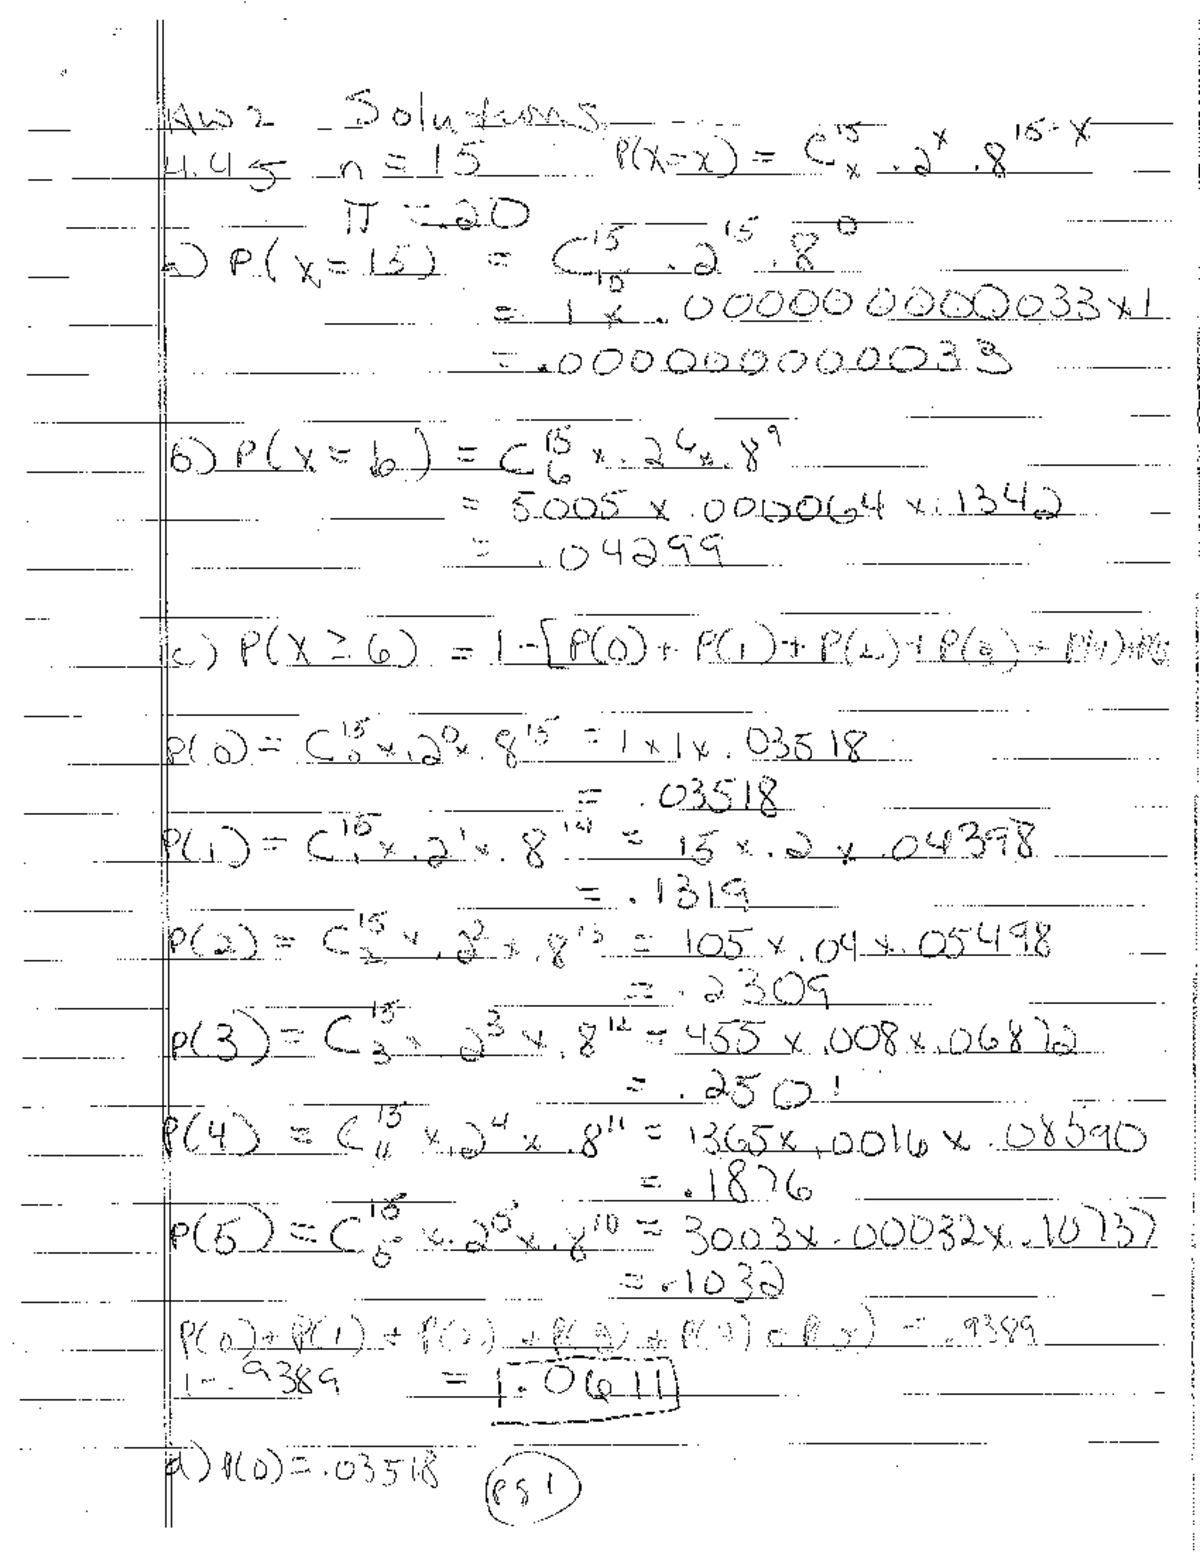 HW2 Solutions
4.45 n = 15 P(X=x) = C^15_x .2^x .8^15-x
π = .20
a) P(x=15) = C^15_10 .2^15 .8^0
= 1 x .000000000033x1
= .000000000033
b) P(x=6) = C^15_6 x .2^6 x .8^9
= 5005 x .000064 x .1342
= .04299
c) P(x≥6) = 1-[P(0)+P(1)+P(2)+P(3)+P(4)+P(5
P(0) = C^15_0 x .2^0 x .8^15 = 1x1x.03518
= .03518
P(1) = C^15_1 x .2^1 x .8^14 = 15 x .2 x .04398
= .1319
P(2) = C^15_2 x .2^2 x .8^13 = 105 x .04 x .05498
= .2309
P(3) = C^15_3 x .2^3 x .8^12 = 455 x .008x .06872
= .2501
P(4) = C^15_4 x .2^4 x .8^11 = 1365x .0016 x .08590
= .1876
P(5) = C^15_5 x .2^5 x .8^10 = 3003x .00032x .10737
= .1032
P(0)+P(1)+P(2)+P(3)+ = .9389
1-.9389 = .0611
d) P(0) = .03518 pg 1